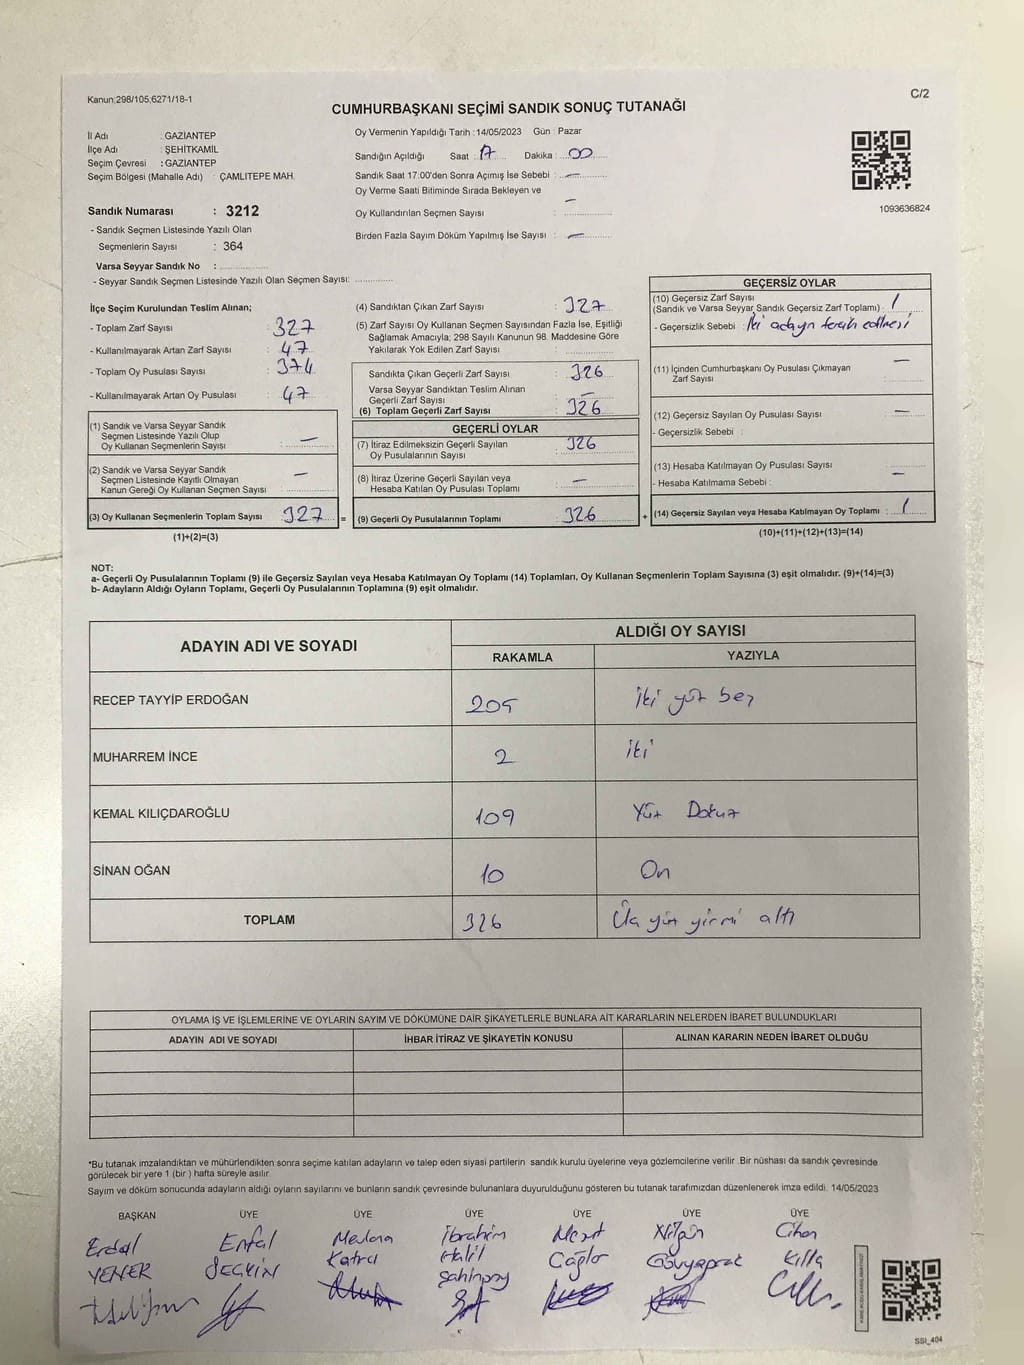 Kanun;298/105,6271/18-1
C/2
CUMHURBAŞKANI SEÇİMİ SANDIK SONUÇ TUTANAĞI
İl Adı : GAZİANTEP
İlçe Adı : ŞEHİTKAMİL
Seçim Çevresi : GAZİANTEP
Seçim Bölgesi (Mahalle Adı) : ÇAMLITEPE MAH.
Sandık Numarası : 3212
- Sandık Seçmen Listesinde Yazılı Olan
Seçmenlerin Sayısı : 364
Varsa Seyyar Sandık No :
- Seyyar Sandık Seçmen Listesinde Yazılı Olan Seçmen Sayısı:
Oy Vermenin Yapıldığı Tarih : 14/05/2023 Gün : Pazar
Sandığın Açıldığı Saat : 17 Dakika : 00
Sandık Saat 17:00'den Sonra Açımış İse Sebebi : —
Oy Verme Saati Bitiminde Sırada Bekleyen ve
Oy Kullandırılan Seçmen Sayısı : —
Birden Fazla Sayım Döküm Yapılmış İse Sayısı : —
1093636824
İlçe Seçim Kurulundan Teslim Alınan;
- Toplam Zarf Sayısı : 327
- Kullanılmayarak Artan Zarf Sayısı : 47
- Toplam Oy Pusulası Sayısı : 374
- Kullanılmayarak Artan Oy Pusulası : 47
(1) Sandık ve Varsa Seyyar Sandık
Seçmen Listesinde Yazılı Olup
Oy Kullanan Seçmenlerin Sayısı : —
(2) Sandık ve Varsa Seyyar Sandık
Seçmen Listesinde Kayıtlı Olmayan
Kanun Gereği Oy Kullanan Seçmen Sayısı : —
(3) Oy Kullanan Seçmenlerin Toplam Sayısı : 327 =
(1)+(2)=(3)
(4) Sandıktan Çıkan Zarf Sayısı : 327
(5) Zarf Sayısı Oy Kullanan Seçmen Sayısından Fazla İse, Eşitliği
Sağlamak Amacıyla; 298 Sayılı Kanunun 98. Maddesine Göre
Yakılarak Yok Edilen Zarf Sayısı :
Sandıkta Çıkan Geçerli Zarf Sayısı : 326
Varsa Seyyar Sandıktan Teslim Alınan
Geçerli Zarf Sayısı : —
(6) Toplam Geçerli Zarf Sayısı : 326
GEÇERLİ OYLAR
(7) İtiraz Edilmeksizin Geçerli Sayılan
Oy Pusulalarının Sayısı : 326
(8) İtiraz Üzerine Geçerli Sayılan veya
Hesaba Katılan Oy Pusulası Toplamı : —
(9) Geçerli Oy Pusulalarının Toplamı : 326 +
GEÇERSİZ OYLAR
(10) Geçersiz Zarf Sayısı
(Sandık ve Varsa Seyyar Sandık Geçersiz Zarf Toplamı) : 1
- Geçersizlik Sebebi : İki adayın tercih edilmesi
(11) İçinden Cumhurbaşkanı Oy Pusulası Çıkmayan
Zarf Sayısı : —
(12) Geçersiz Sayılan Oy Pusulası Sayısı : —
- Geçersizlik Sebebi :
(13) Hesaba Katılmayan Oy Pusulası Sayısı : —
- Hesaba Katılmama Sebebi :
(14) Geçersiz Sayılan veya Hesaba Katılmayan Oy Toplamı : 1
(10)+(11)+(12)+(13)=(14)
NOT:
a- Geçerli Oy Pusulalarının Toplamı (9) ile Geçersiz Sayılan veya Hesaba Katılmayan Oy Toplamı (14) Toplamları, Oy Kullanan Seçmenlerin Toplam Sayısına (3) eşit olmalıdır. (9)+(14)=(3)
b- Adayların Aldığı Oyların Toplamı, Geçerli Oy Pusulalarının Toplamına (9) eşit olmalıdır.
ADAYIN ADI VE SOYADI
ALDIĞI OY SAYISI
RAKAMLA YAZIYLA
RECEP TAYYİP ERDOĞAN 205 İki yüz beş
MUHARREM İNCE 2 İki
KEMAL KILIÇDAROĞLU 109 Yüz Dokuz
SİNAN OĞAN 10 On
TOPLAM 326 Üç yüz yirmi altı
OYLAMA İŞ VE İŞLEMLERİNE VE OYLARIN SAYIM VE DÖKÜMÜNE DAİR ŞİKAYETLERLE BUNLARA AİT KARARLARIN NELERDEN İBARET BULUNDUKLARI
ADAYIN ADI VE SOYADI İHBAR İTİRAZ VE ŞİKAYETİN KONUSU ALINAN KARARIN NEDEN İBARET OLDUĞU
*Bu tutanak imzalandıktan ve mühürlendikten sonra seçime katılan adayların ve talep eden siyasi partilerin sandık kurulu üyelerine veya gözlemcilerine verilir .Bir nüshası da sandık çevresinde
görülecek bir yere 1 (bir ) hafta süreyle asılır.
Sayım ve döküm sonucunda adayların aldığı oyların sayılarını ve bunların sandık çevresinde bulunanlara duyurulduğunu gösteren bu tutanak tarafımızdan düzenlenerek imza edildi. 14/05/2023
BAŞKAN ÜYE ÜYE ÜYE ÜYE ÜYE ÜYE
Erdal Enfal Medona İbrahim Mert Nilgün Cihan
YENER SEÇKİN Katrcı Halil Çağlar Gövyaprak Killa
Şahinpoy
SSI_404